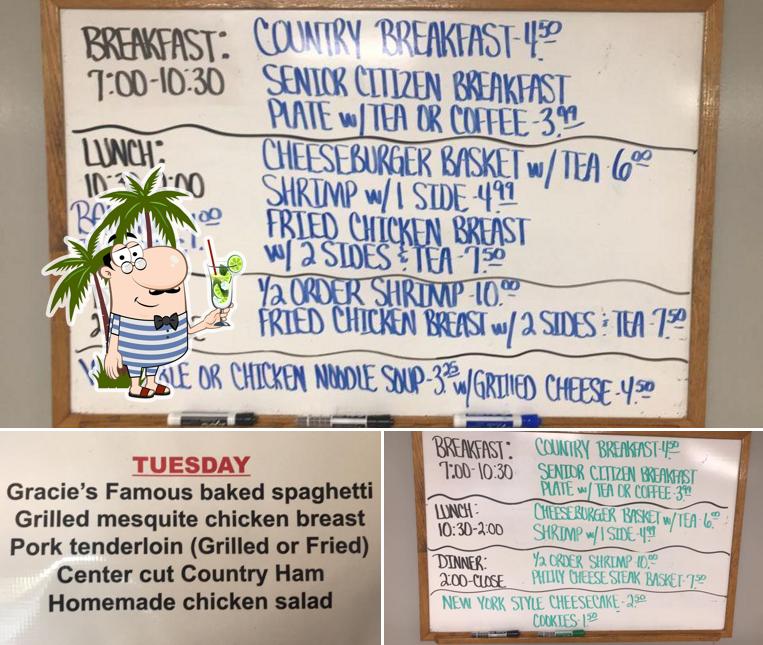 BREAKFAST: COUNTRY BREAKFAST-4.50
7:00-10:30 SENIOR CITIZEN BREAKFAST
PLATE w/TEA OR COFFEE-3.99
LUNCH: CHEESEBURGER BASKET w/ TEA-6.00
SHRIMP w/1 SIDE-4.99
FRIED CHICKEN BREAST
w/ 2 SIDES & TEA-7.50
1/2 ORDER SHRIMP-10.00
FRIED CHICKEN BREAST w/ 2 SIDES & TEA-7.50
OR CHICKEN NOODLE SOUP-3.25 w/GRILLED CHEESE-4.50
TUESDAY
Gracie's Famous baked spaghetti
Grilled mesquite chicken breast
Pork tenderloin (Grilled or Fried)
Center cut Country Ham
Homemade chicken salad
BREAKFAST: COUNTRY BREAKFAST-4.50
7:00-10:30 SENIOR CITIZEN BREAKFAST
PLATE w/ TEA OR COFFEE-3.99
LUNCH: CHEESEBURGER BASKET w/TEA-6.00
10:30-2:00 SHRIMP w/1 SIDE-4.99
DINNER: 1/2 ORDER SHRIMP-10.00
2:00-CLOSE PHILLY CHEESE STEAK BASKET-7.50
NEW YORK STYLE CHEESECAKE-2.50
COOKIES-1.50